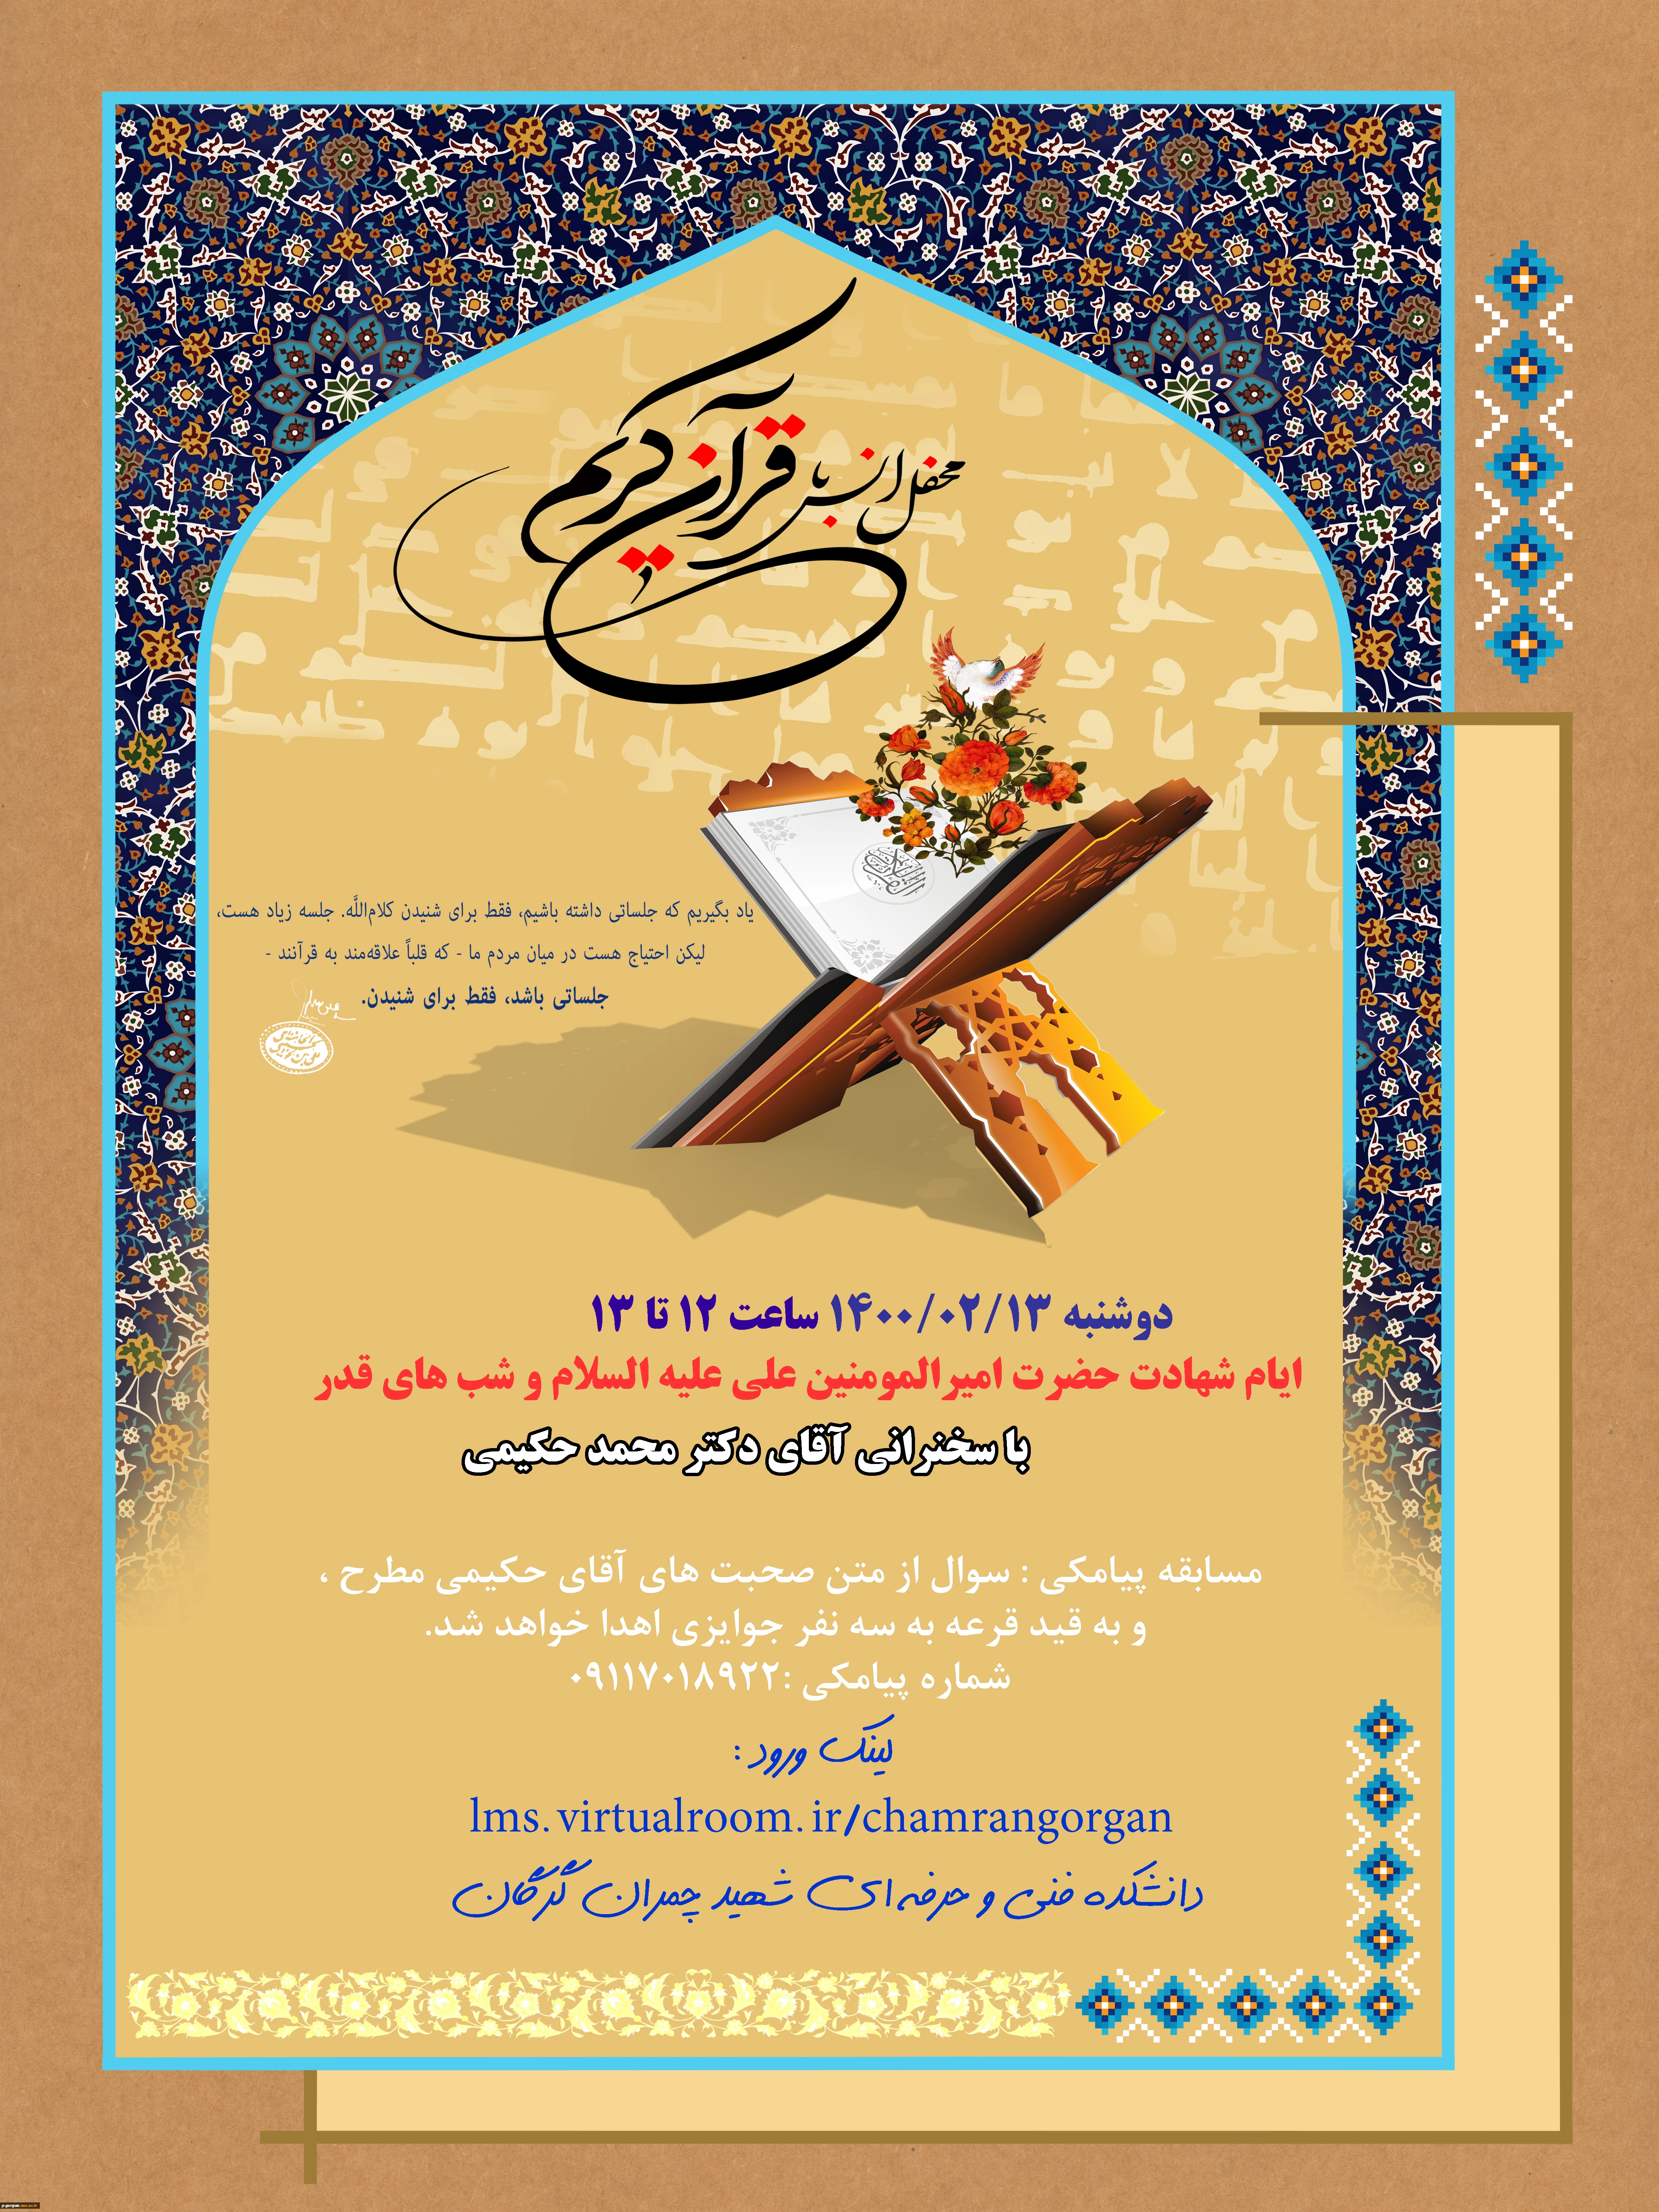 محفل انس با قرآن کریم
یاد بگیریم که جلساتی داشته باشیم، فقط برای شنیدن کلام‌اللَّه. جلسه زیاد هست،
لیکن احتیاج هست در میان مردم ما - که قلباً علاقه‌مند به قرآنند -
جلساتی باشد، فقط برای شنیدن.
دوشنبه ۱۴۰۰/۰۲/۱۳ ساعت ۱۲ تا ۱۳
ایام شهادت حضرت امیرالمومنین علی علیه السلام و شب های قدر
با سخنرانی آقای دکتر محمد حکیمی
مسابقه پیامکی : سوال از متن صحبت های آقای حکیمی مطرح ،
و به قید قرعه به سه نفر جوایزی اهدا خواهد شد.
شماره پیامکی :۰۹۱۱۷۰۱۸۹۲۲
لینک ورود :
lms.virtualroom.ir/chamrangorgan
دانشکده فنی و حرفه ای شهید چمران گرگان